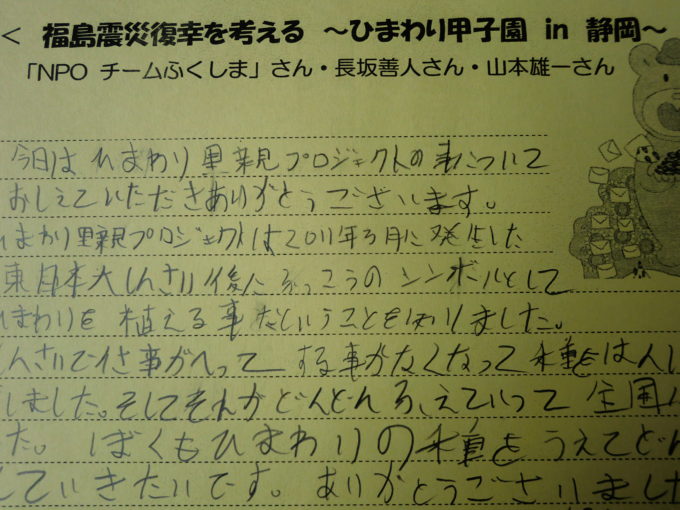 < 福島震災復幸を考える ～ひまわり甲子園 in 静岡～
「NPO チームふくしま」さん・長坂善人さん・山本雄一さん
今日はひまわり里親プロジェクトの事について
おしえていただきありがとうございます。
ひまわり里親プロジェクトは2011年3月に発生した
東日本大しんさい後にふっこうのシンボルとして
ひまわりを植える事だということを知りました。
んさいで仕事がへって する事がなくなって 種をは
しました。そしてそれがどんどんふえていって 全国
た。ぼくもひまわりの種をうえてどん
していきたいです。ありがとうございました